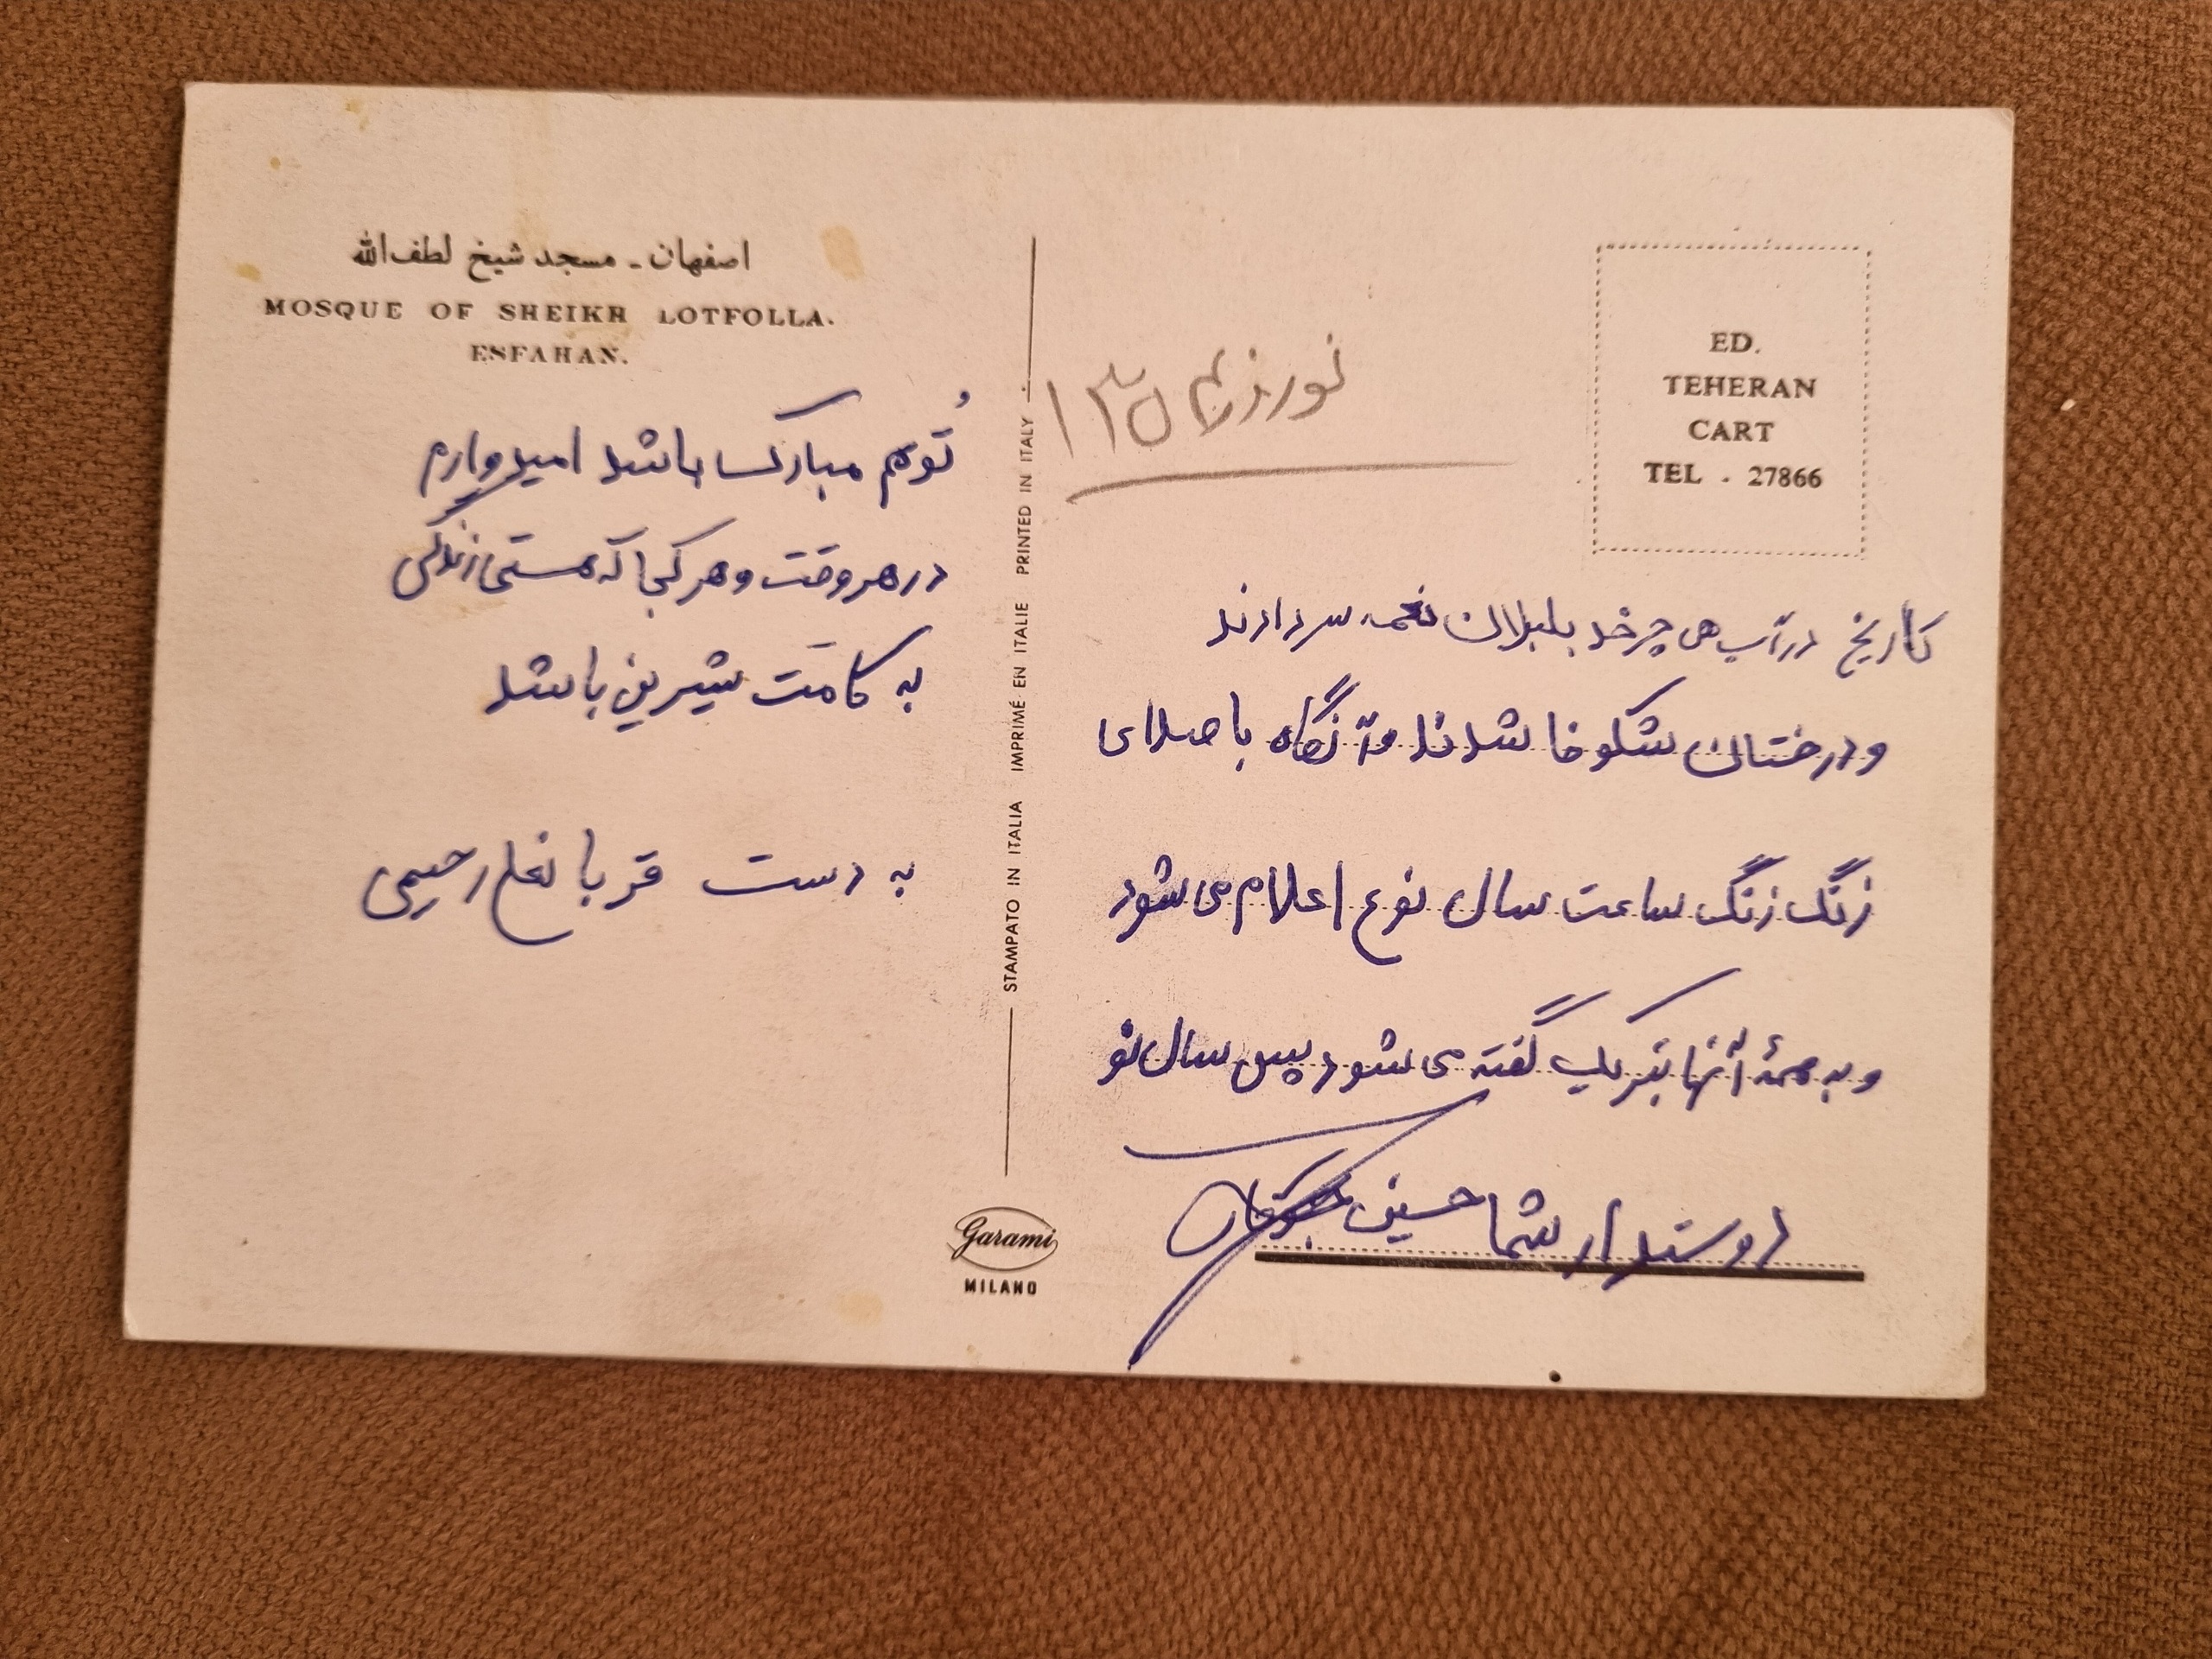 اصفهان - مسجد شیخ لطف‌الله
MOSQUE OF SHEIKH LOTFOLLA.
ESFAHAN.
تو هم مبارک باشد امیدوارم
در هر وقت و هر کجا که هستی زندگی
به کامت شیرین باشد
به دست قربانعلی رحیمی
STAMPATO IN ITALIA IMPRIMÉ EN ITALIE PRINTED IN ITALY
Garami
MILANO
ED.
TEHERAN
CART
TEL . 27866
نوروز ۱۳۵
نارنج در آب می چرخد بلبلان نغمه سر دادند
و درختان شکوفا شدند و آنگاه با صدای
زنگ زنگ ساعت سال نوع اعلام می شود
و به همهٔ آنها تبریک گفته می شود پس سال نو
دوستدار شما حسین